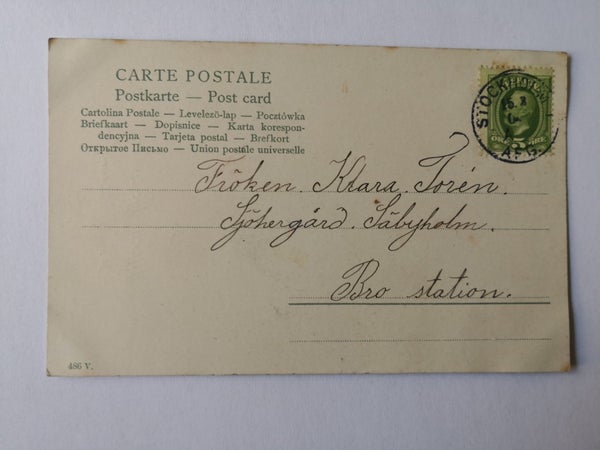 CARTE POSTALE
Postkarte — Post card
Cartolina Postale — Levelezö-lap — Pocztówka
Briefkaart — Dopisnice — Karta korespon-
dencyjna — Tarjeta postal — Brefkort
Открытое Письмо — Union postale universelle
STOCK
AFG.
Fröken. Klara. Torén.
Sjöhergård. Säbyholm.
Bro station.
486 V.